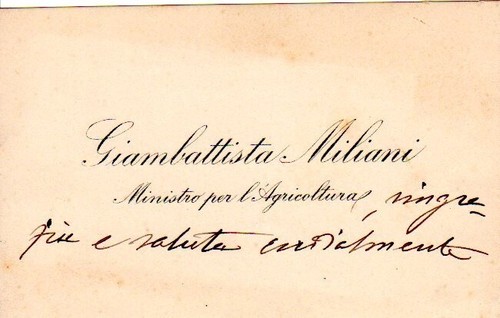 Giambattista Miliani
Ministro per l'Agricoltura, ringra-
zia e saluta cordialmente